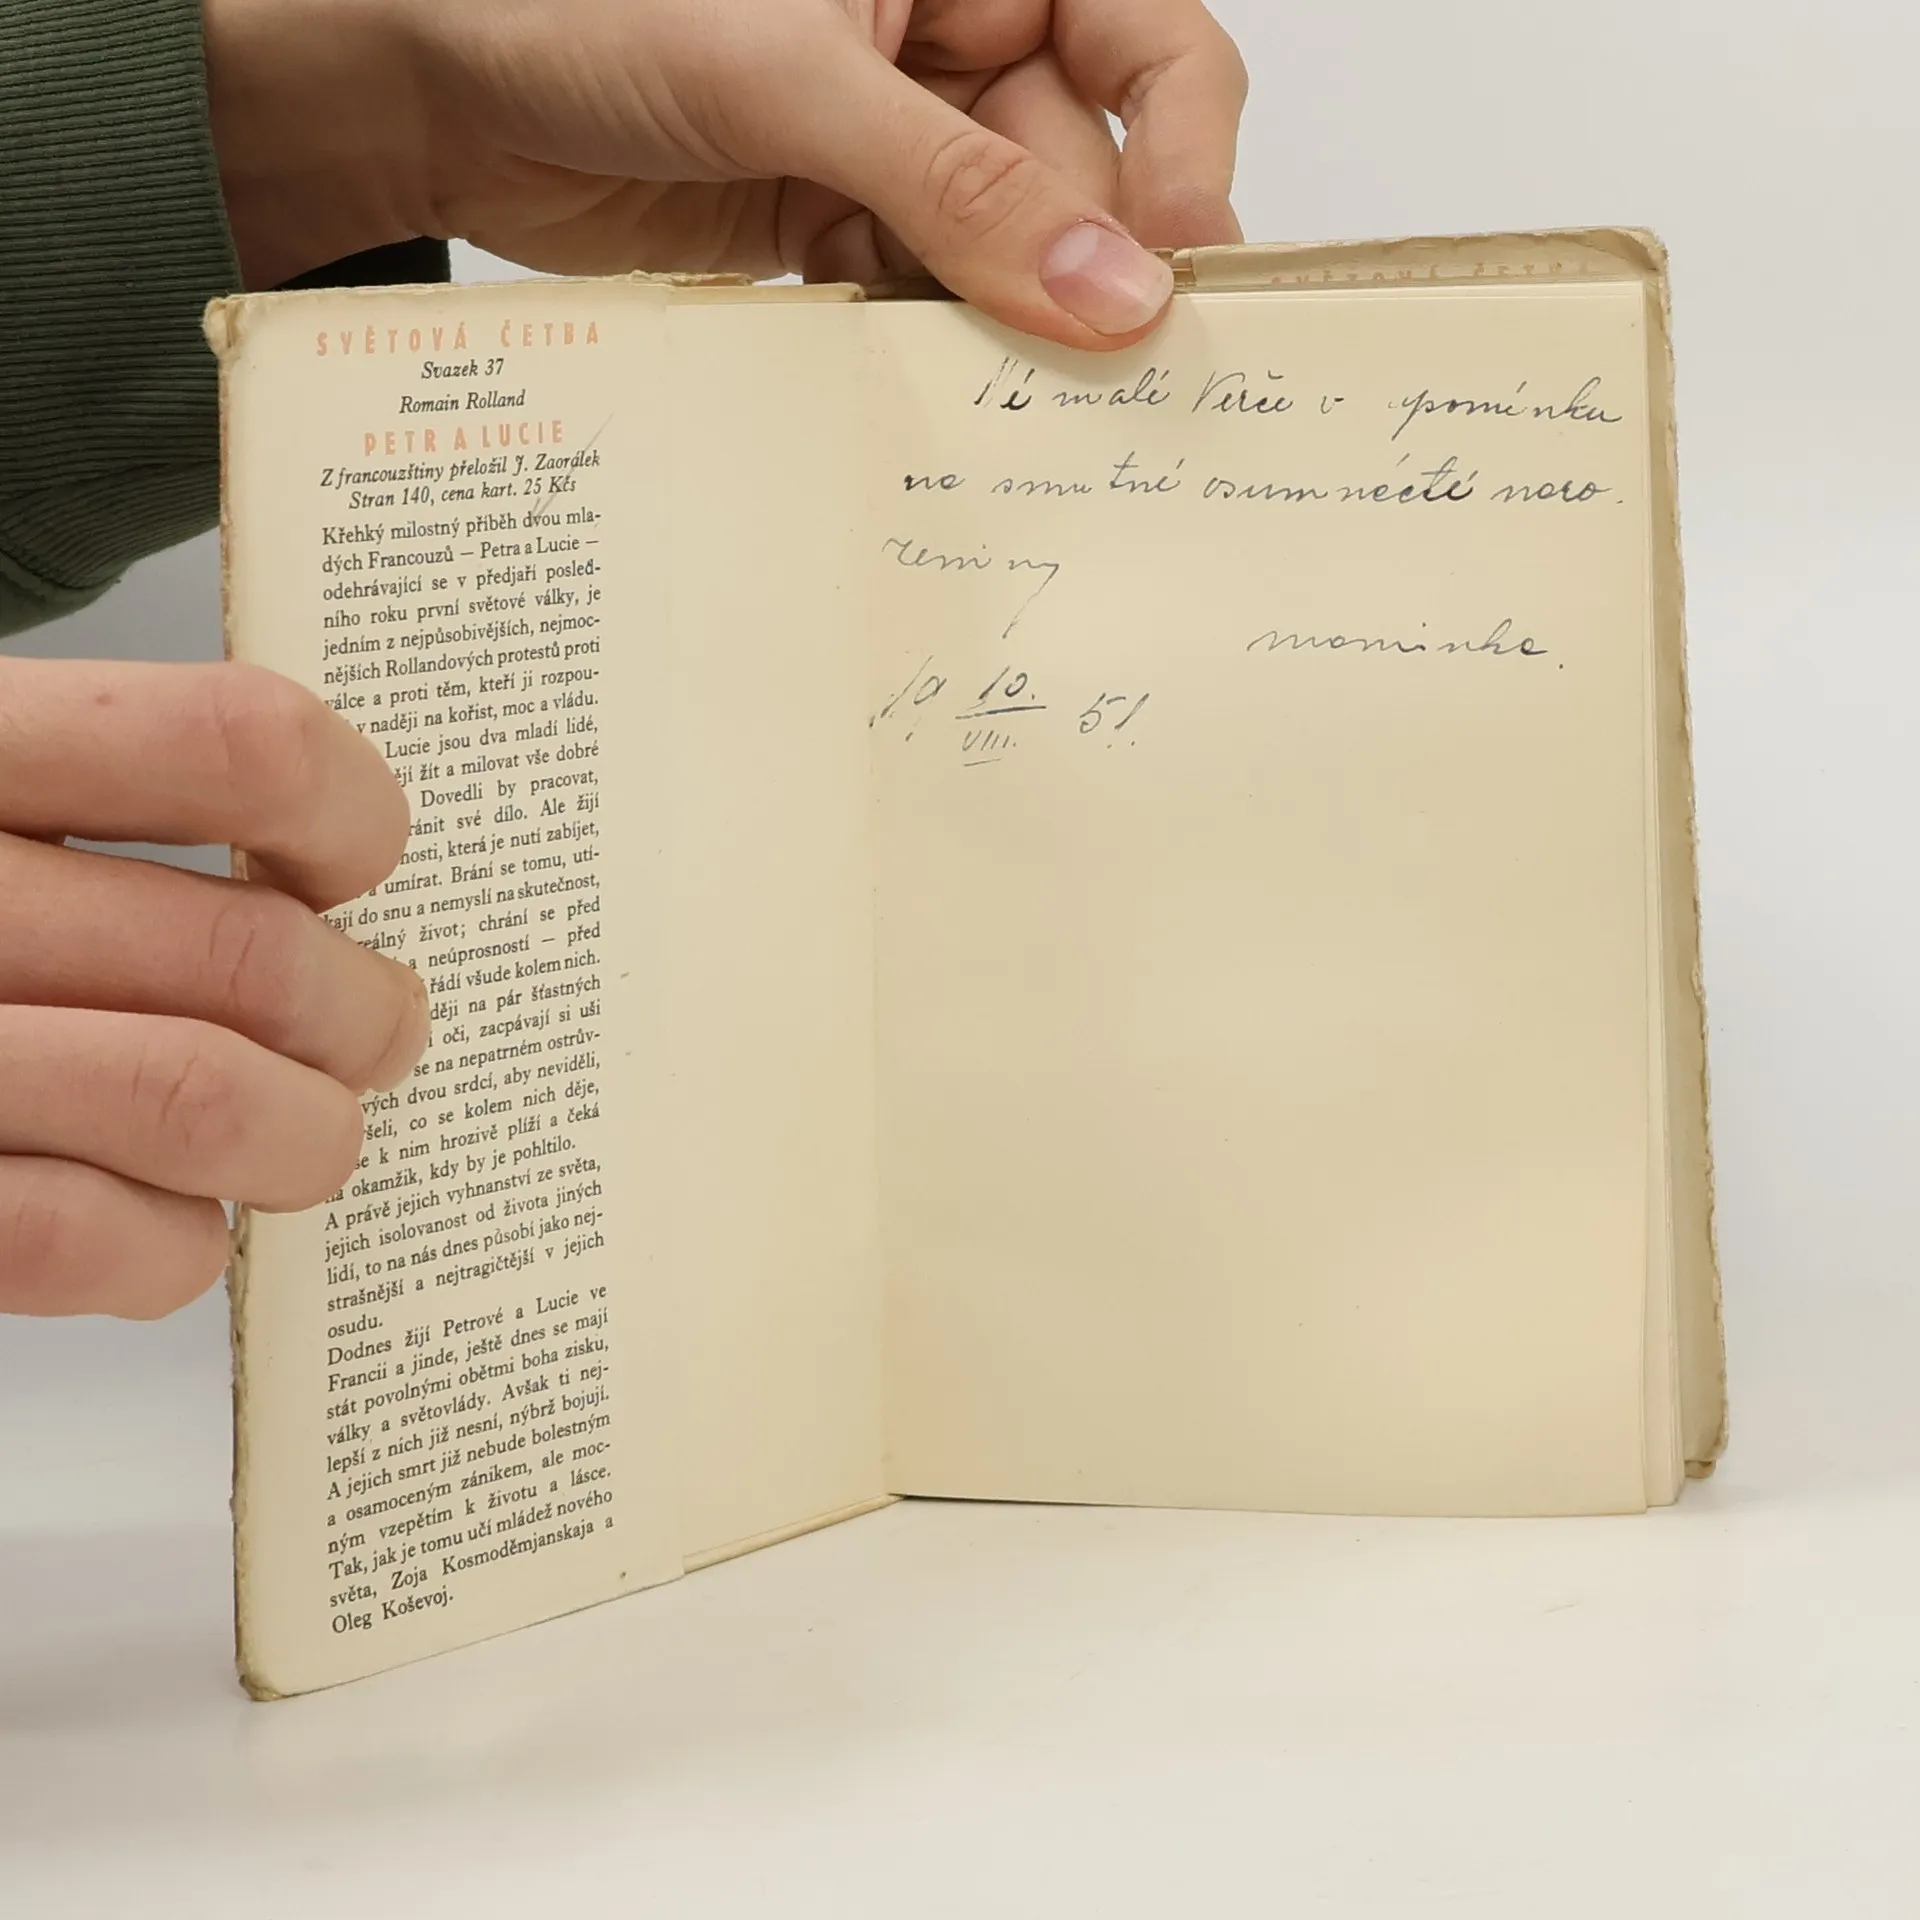 SVĚTOVÁ ČETBA
Svazek 37
Romain Rolland
PETR A LUCIE
Z francouzštiny přeložil J. Zaorálek
Stran 140, cena kart. 25 Kčs
Křehký milostný příběh dvou mla-
dých Francouzů — Petra a Lucie —
odehrávající se v předjaří posled-
ního roku první světové války, je
jedním z nejpůsobivějších, nejmoc-
nějších Rollandových protestů proti
válce a proti těm, kteří ji rozpou-
v naději na kořist, moc a vládu.
Lucie jsou dva mladí lidé,
žít a milovat vše dobré
Dovedli by pracovat,
své dílo. Ale žijí
která je nutí zabíjet,
a umírat. Brání se tomu, utí-
kají do snu a nemyslí na skutečnost,
život; chrání se před
a neúprosností — před
řádí všude kolem nich.
na pár šťastných
oči, zacpávají si uši
se na nepatrném ostrův-
dvou srdcí, aby neviděli,
co se kolem nich děje,
se k nim hrozivě plíží a čeká
na okamžik, kdy by je pohltilo.
A právě jejich vyhnanství ze světa,
jejich isolovanost od života jiných
lidí, to na nás dnes působí jako nej-
strašnější a nejtragičtější v jejich
osudu.
Dodnes žijí Petrové a Lucie ve
Francii a jinde, ještě dnes se mají
stát povolnými obětmi boha zisku,
války a světovlády. Avšak ti nej-
lepší z nich již nesní, nýbrž bojují.
A jejich smrt již nebude bolestným
a osamoceným zánikem, ale moc-
ným vzepětím k životu a lásce.
Tak, jak je tomu učí mládež nového
světa, Zoja Kosmoděmjanskaja a
Oleg Koševoj.
SVĚTOVÁ ČETBA
Mé malé Věrce v upomínku
na smutné osumnácté naro
zeniny
maminka.
10.
VIII.
51.